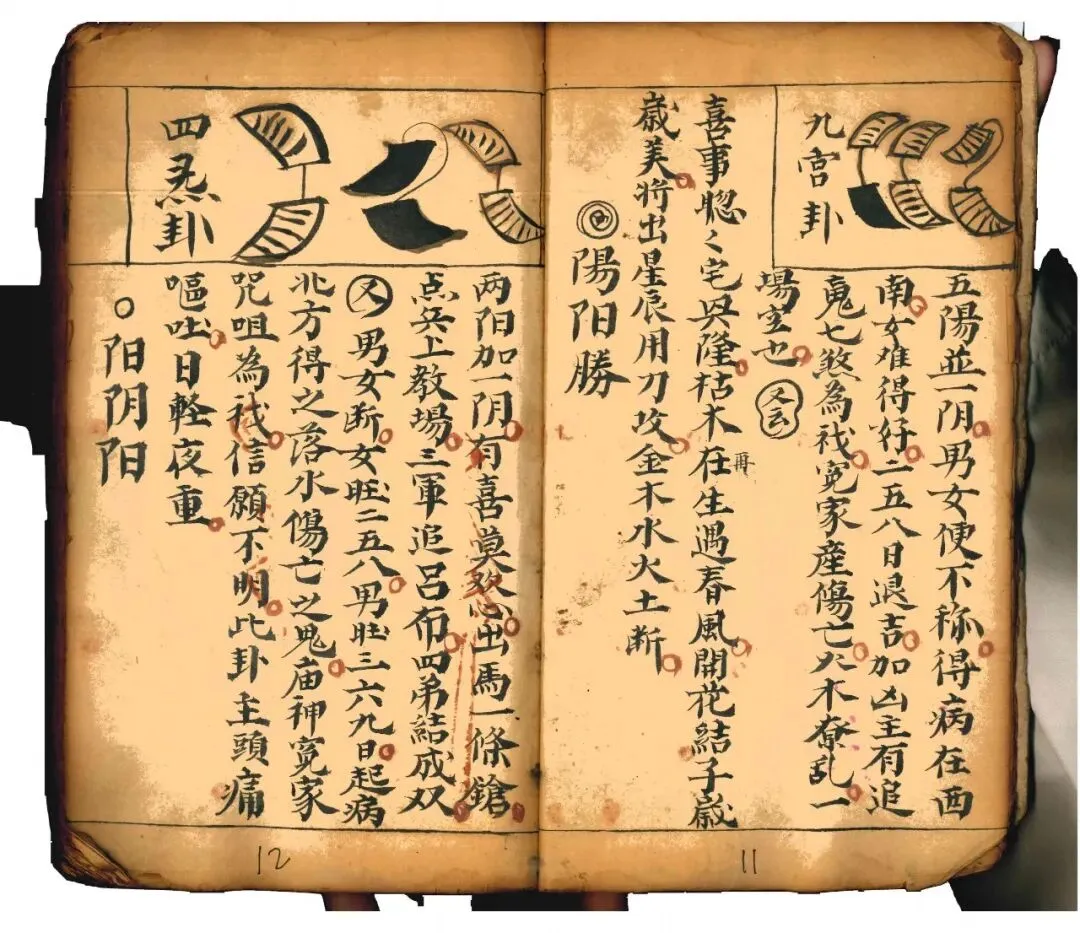 九宮卦
五陽並一阴男女便不称得病在西
南女难得好二五八日退吉加凶主有追
魂七煞為我冤家産傷亡火木撩乱一
場空也 又云
喜事聪々宅興隆枯木在再生遇春風開花結子歲
歲美將出星辰用刀攻金木水火土断
陽阳勝
11
四
卦
两阳加一阴有喜莫欢心出馬一條鎗
点兵上教場三軍追呂布四弟結成双
又男女断女旺二五八男旺三六九日起病
北方得之落水傷亡之鬼庙神冤家
咒咀為我信願不明此卦主頭痛
嘔吐日輕夜重
阳阴阳
12